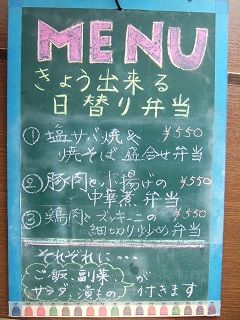 MENU
きょう出来る
日替り弁当
① 塩サバ焼& ¥550
焼そば盛合せ弁当
② 豚肉と小揚げの ¥550
中華煮弁当
③ 鶏肉とズッキーニの ¥550
細切り炒め弁当
それぞれに…
ご飯、副菜、が
サラダ、漬もの 付きます